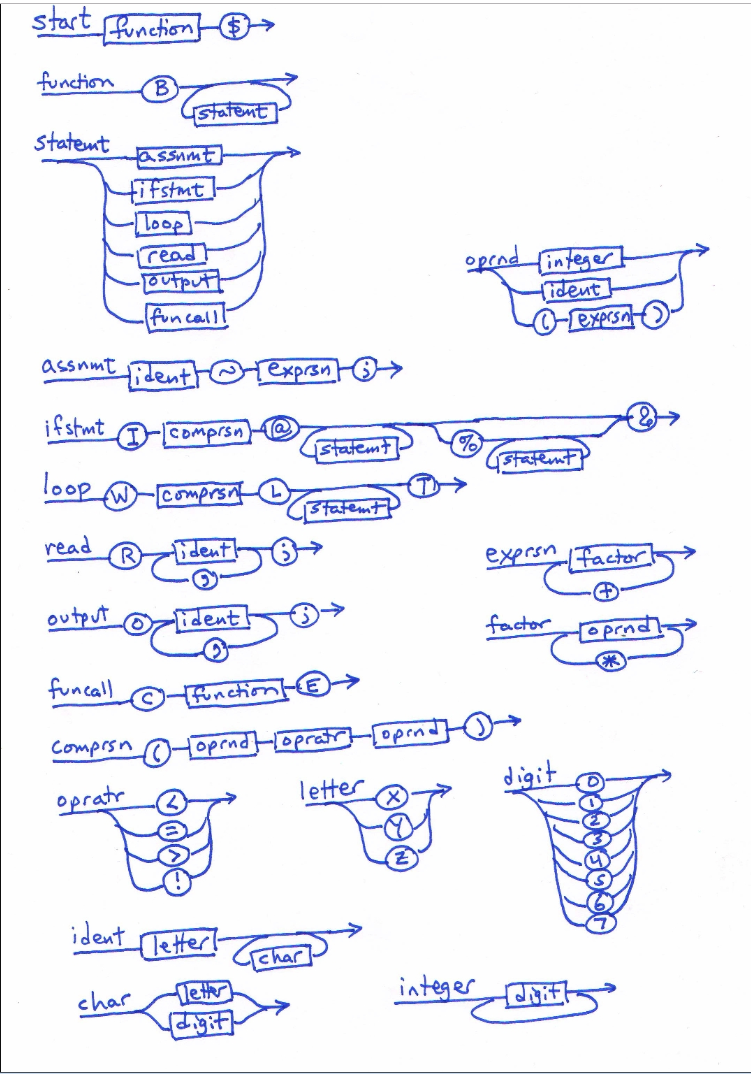 start function $
function B
statemt
statemt assnmt
ifstmt
loop
read
output
funcall
oprnd integer
ident
( exprsn )
assnmt ident ~ exprsn ;
ifstmt I comprsn @ statemt % statemt &
loop W comprsn L statemt T
read R ident ;
,
exprsn factor
+
output O ident ;
,
factor oprnd
*
funcall C function E
comprsn ( oprnd opratr oprnd )
opratr <
=
>
!
letter X
Y
Z
digit 0
1
2
3
4
5
6
7
ident letter
char
char letter
digit
integer digit